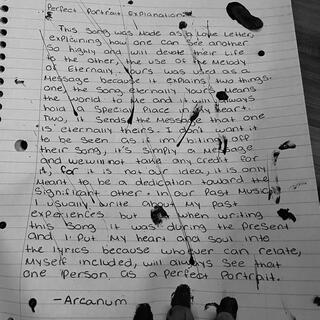 Perfect Portrait Explanation:
This song was made as a love letter,
explaining how one can see another
so highly and will devote their life
to the other, the use of the Melody
of Eternally Yours was used as a
Message because it explains two things.
one, the song, eternally yours means
the world to me and it will always
hold a special place in my heart.
Two, I sends the message that one
is eternally theirs. I don't want it
to be seen as if im biting off
their song, it's simply a message
and we will not take any credit for
it, for it is not our idea, it is only
meant to be a dedication toward the
significant other. in our past music
I usually write about my past
experiences but when writing
this song it was during the present
and I put my heart and soul into
the lyrics because whoever can relate,
myself included, will always see that
one person as a perfect portrait.
-Arcanum